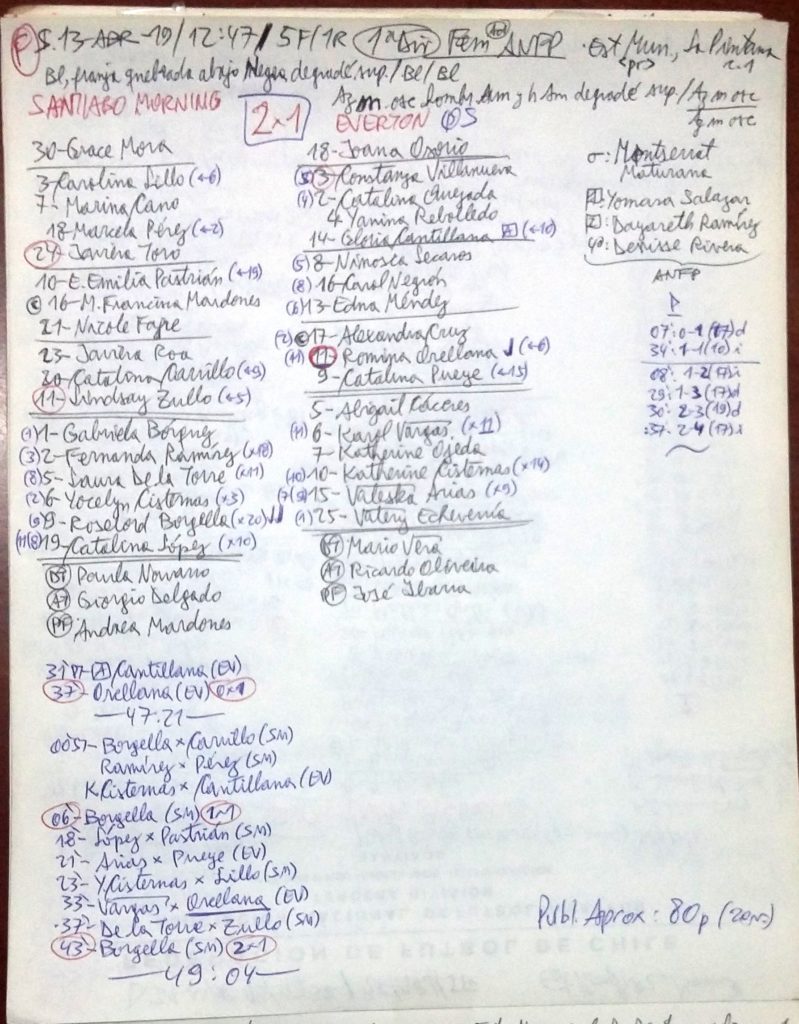 S. 13-ABR-19/12:47/5F/1R 1ªDiv Fem ANFP · Est Mun, La Pintana
Bl, franja quebrada abajo Negra degradé sup./Bl/Bl
SANTIAGO MORNING 2-1 EVERTON
30-Grace Mora
3-Carolina Lillo (←6)
7-Marina Cano
18-Marcela Pérez (←2)
24-Javiera Toro
10-E. Emilia Pastrián (←19)
© 16-M. Francina Mardones
21-Nicole Fajre
23-Javiera Roa
20-Catalina Carrillo (←9)
11-Lindsay Zullo (←5)
1-Gabriela Bórquez
(3) 2-Fernanda Ramírez (×18)
(8) 5-Laura De la Torre (×11)
(2) 6-Yocelyn Cisternas (×3)
(9) 9-Roselord Borgella (×20)
19-Catalina López (×10)
DT Paula Navarro
AT Giorgio Delgado
PF Andrea Mardones
18-Joana Osorio
(5) 3-Constanza Villanueva
(4) 2-Catalina Quezada
4-Yanina Rebolledo
14-Gloria Cantillana A (←10)
(5) 8-Nimosca Secaros
(8) 16-Carol Negrón
(6) 13-Edna Méndez
(2) © 17-Alexandra Cruz
(11) 11-Romina Orellana (←6)
9-Catalina Pueye (←15)
5-Abigail Cáceres
(11) 6-Karyl Vargas (×11)
7-Katherine Ojeda
(10) 10-Katherine Cisternas (×14)
15-Valeska Arias (×9)
(1) 25-Valery Echeverría
DT Mario Vera
AT Ricardo Oliveira
PF José Ibarra
σ: Montserrat
Maturana
1: Yomara Salazar
2: Dayareth Ramírez
4º: Denisse Rivera
ANFP
P
07: 0-1 (17)d
34: 1-1 (10) i
08: 1-2 (17)i
29: 1-3 (17)d
30: 2-3 (19)d
:37: 2-4 (17)i
31'07-A/Cantillana (EV)
37-Orellana (EV) 0-1
—47:21—
0051-Borgella × Carrillo (SM)
Ramírez × Pérez (SM)
K Cisternas × Cantillana (EV)
06-Borgella (SM) 1-1
18-López × Pastrián (SM)
21-Arias × Pueye (EV)
23-Y Cisternas × Lillo (SM)
33-Vargas × Orellana (EV)
·37-De la Torre × Zullo (SM)
43-Borgella (SM) 2-1
—49:04—
Publ. Aprox: 80p (zona)